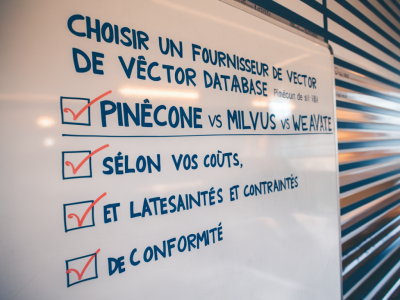 CHOISIR UN FOURNISSEUR DE VECTOR
DE VÊCTOR DATABASE
PINÊCONE VS MILVUS VS WEAVATE
SÉLON VOS COÙTS,
ET LATESAINTÉS ET CONTRAINTÈS
DE CONFORMITÉ